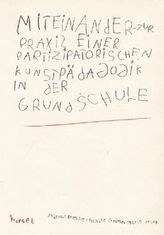 MITEINANDER-ZUR
PRAXIS EINER
PARTIZIPATORISCHEN
KUNSTPÄDAGOGIK
IN DER
GRUNDSCHULE
kopaed